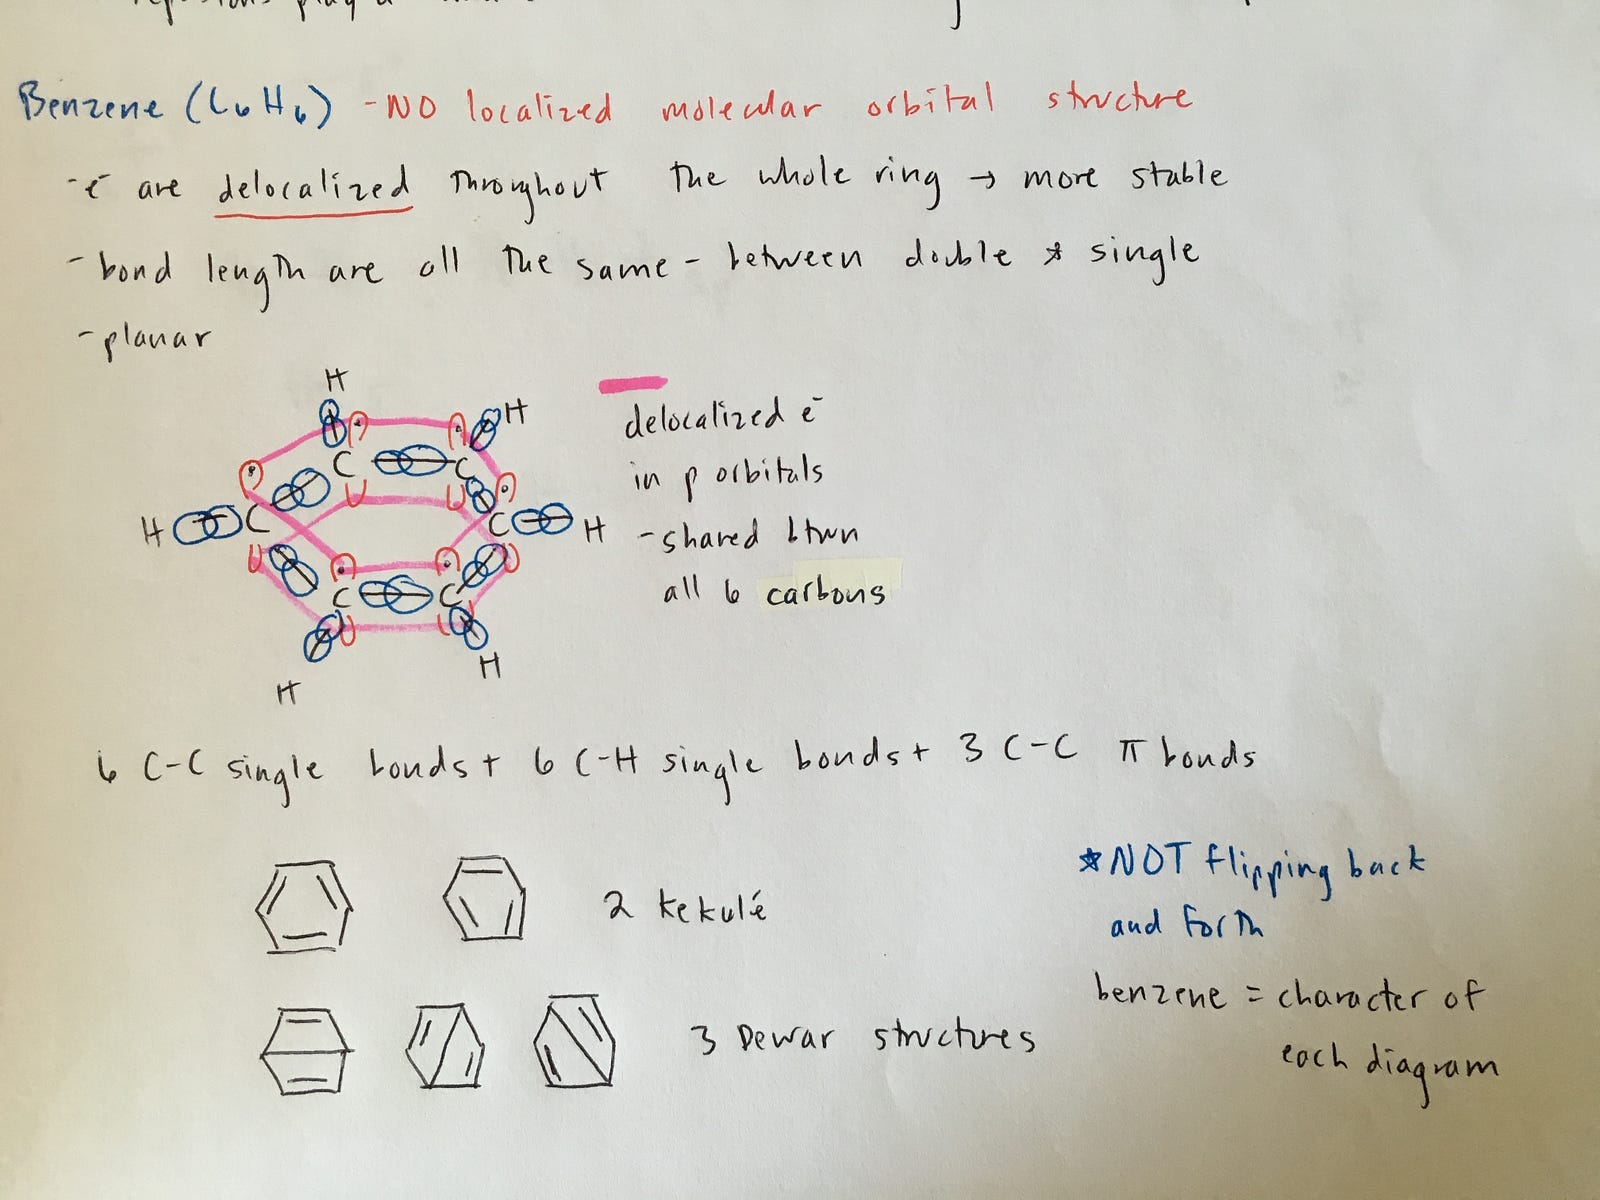 Benzene (C6H6) - NO localized molecular orbital structure
- e⁻ are delocalized throughout the whole ring → more stable
- bond length are all the same - between double & single
- planar
H
H
C
C
H
C
C
H
C
C
H
H
delocalized e⁻
in p orbitals
- shared btwn
all 6 carbons
6 C-C single bonds + 6 C-H single bonds + 3 C-C π bonds
2 Kekulé
3 Dewar structures
*NOT flipping back
and forth
benzene = character of
each diagram